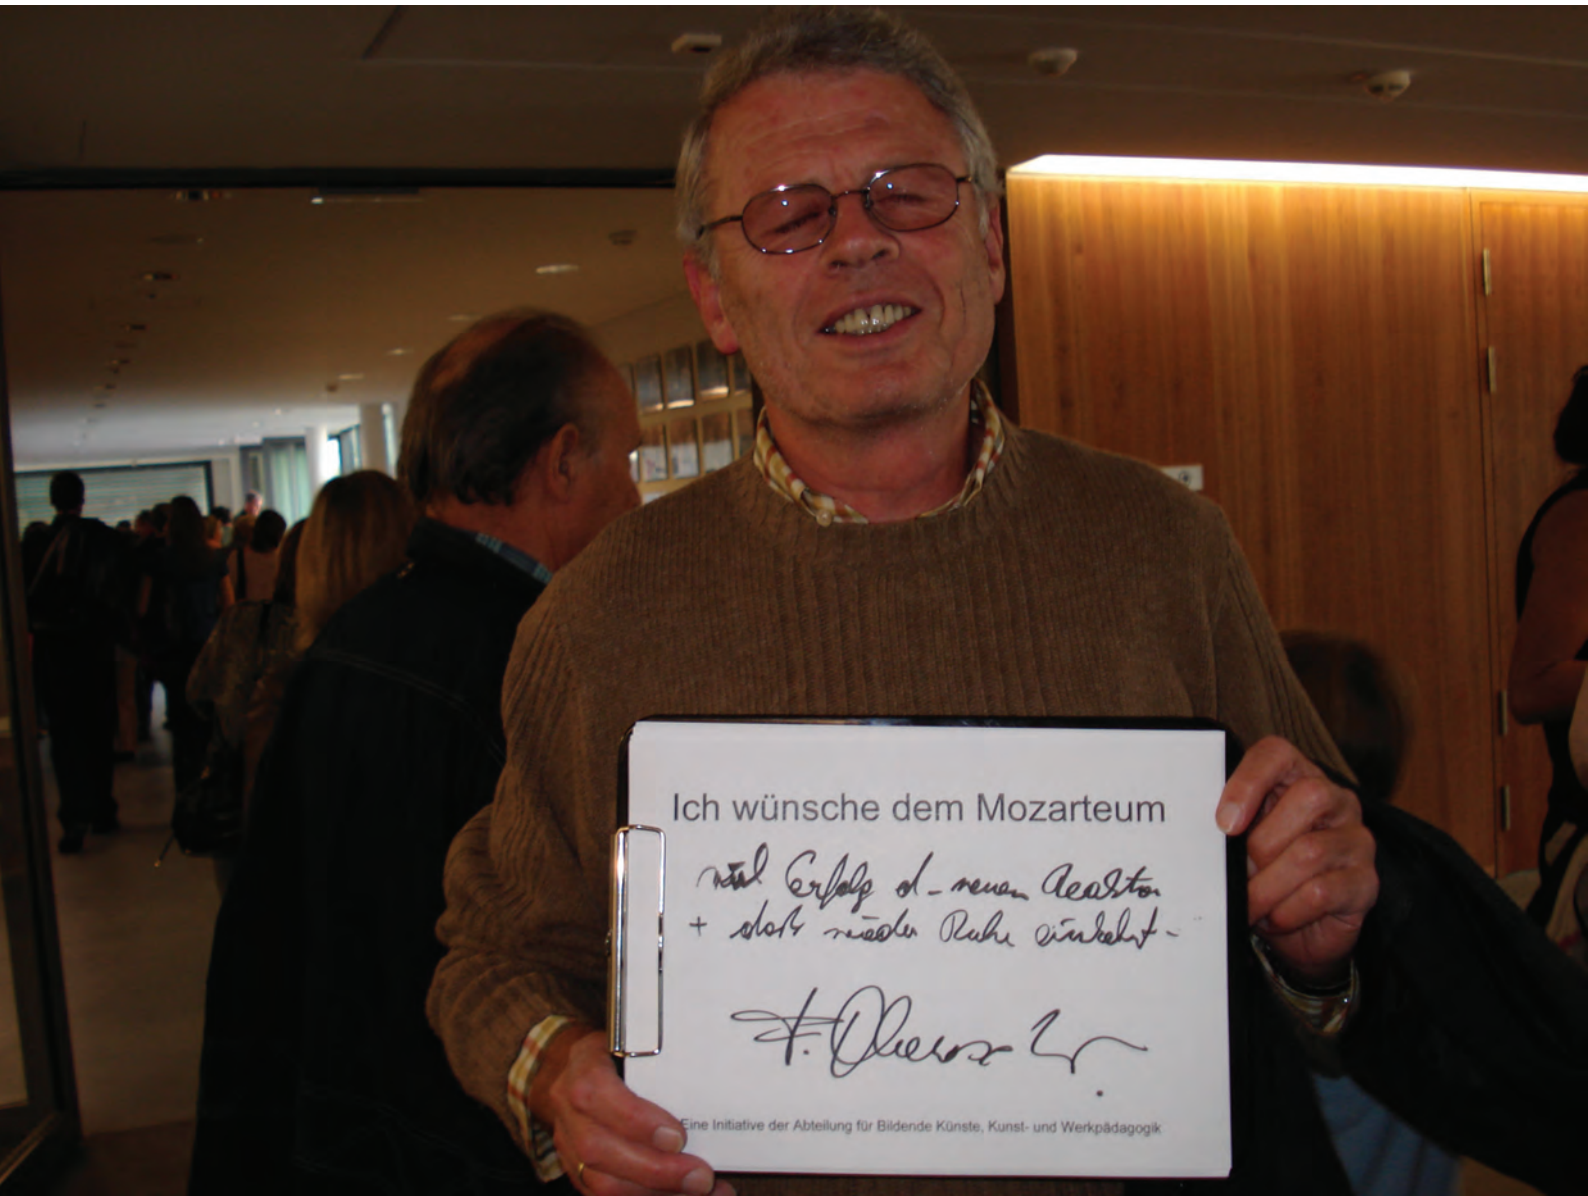 Ich wünsche dem Mozarteum
viel Erfolg d. neuen
+ daß wieder Ruhe einkehrt -
F.
Eine Initiative der Abteilung für Bildende Künste, Kunst- und Werkpädagogik